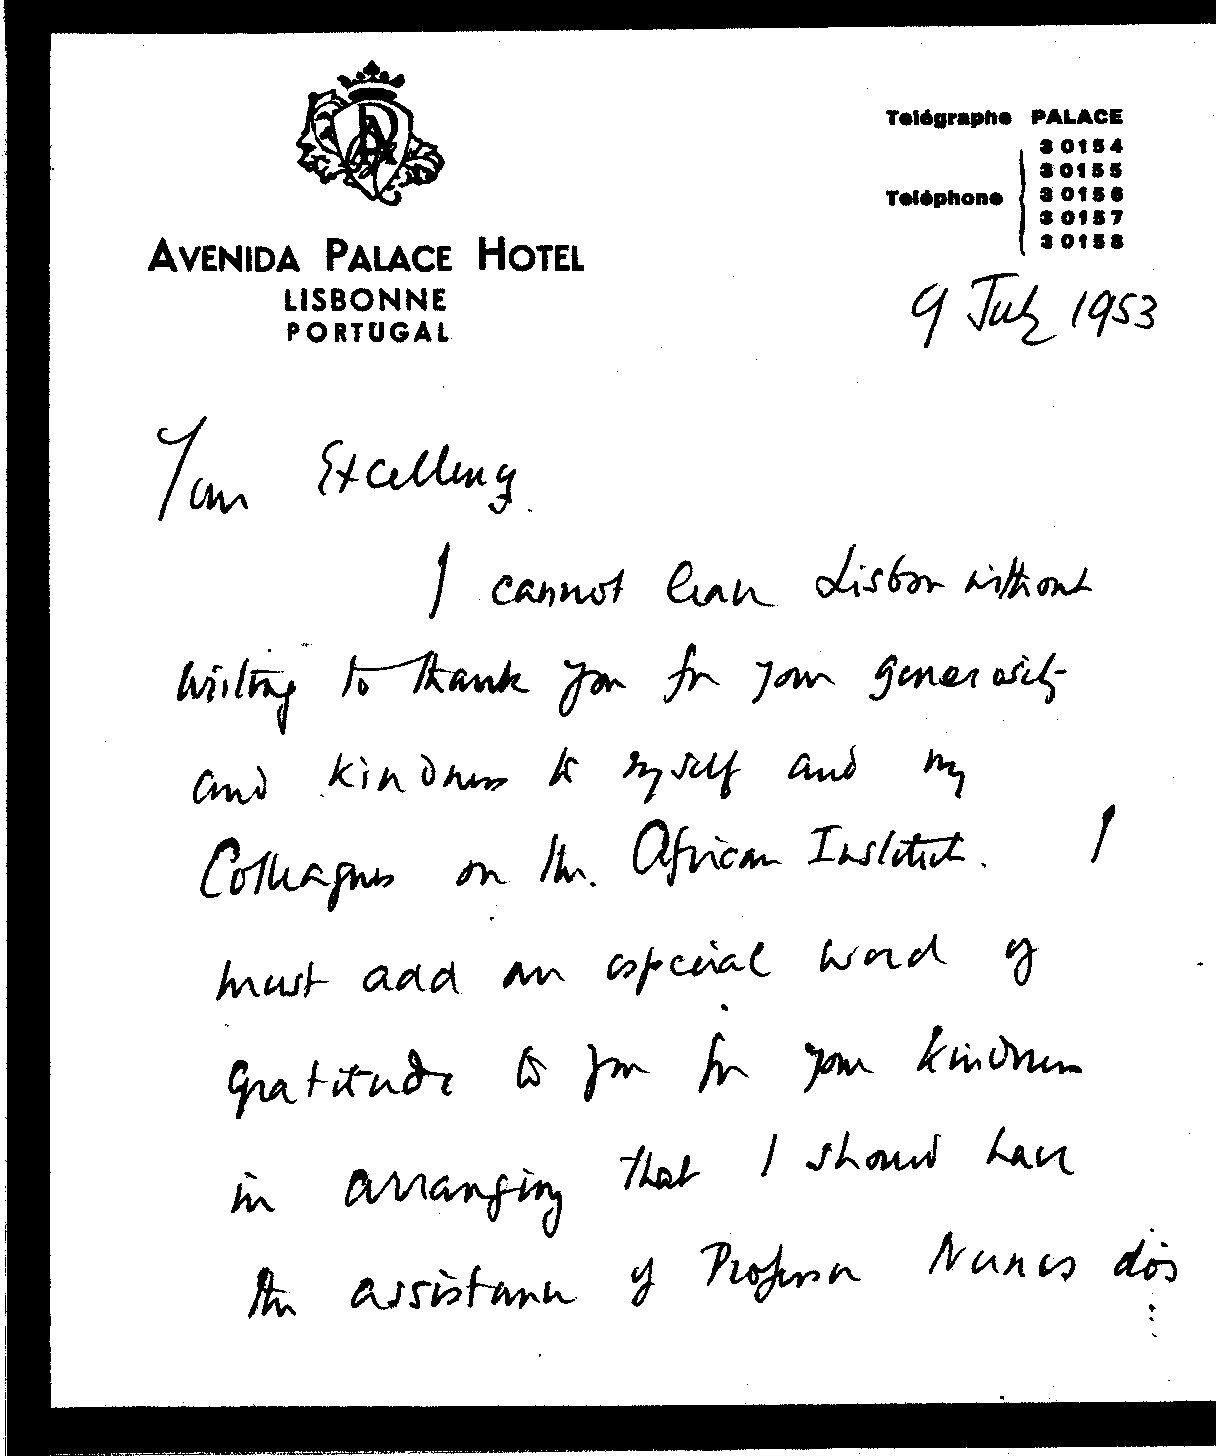 Telégraphe PALACE
30154
30155
Teléphone 30156
30157
30158
AVENIDA PALACE HOTEL
LISBONNE
PORTUGAL
9 July 1953
Your Excellency
I cannot leave Lisbon without
writing to thank you for your generosity
and kindness to myself and my
Colleagues on the African Institute. I
must add an especial word of
gratitude to you for your kindness
in arranging that I should have
the assistance of Professor Nunes dos